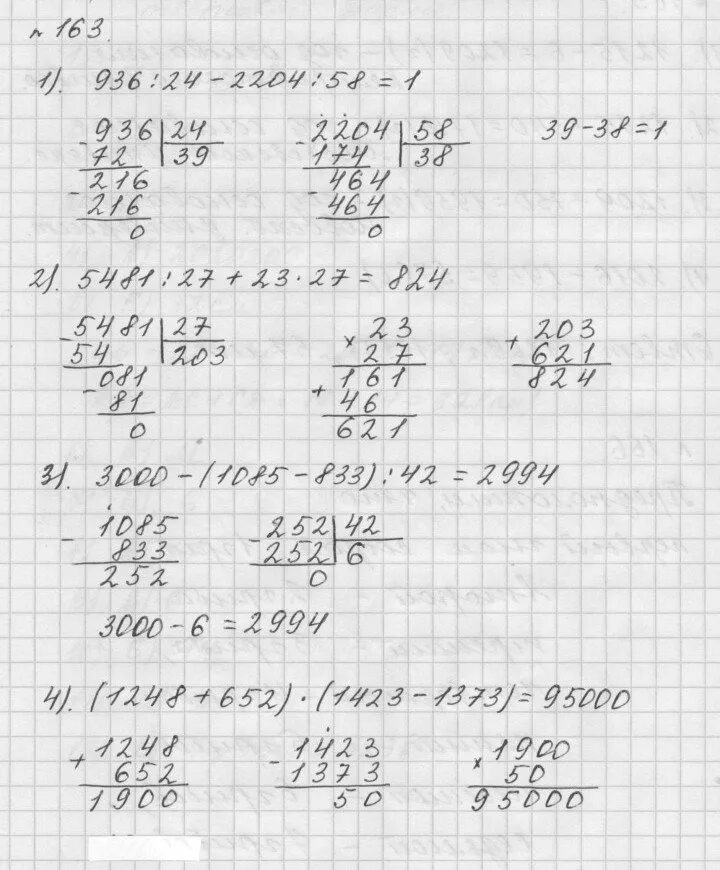 № 163.
1). 936 : 24 − 2204 : 58 = 1
− 936 | 24
72 | 39
− 216
216
0
− 2204 | 58
174 | 38
− 464
464
0
39 − 38 = 1
2). 5481 : 27 + 23 · 27 = 824
− 5481 | 27
54 | 203
− 081
81
0
× 23
27
+ 161
46
621
+ 203
621
824
3). 3000 − (1085 − 833) : 42 = 2994
− 1085
833
252
− 252 | 42
252 | 6
0
3000 − 6 = 2994
4). (1248 + 652) · (1423 − 1373) = 95000
+ 1248
652
1900
− 1423
1373
50
× 1900
50
95000